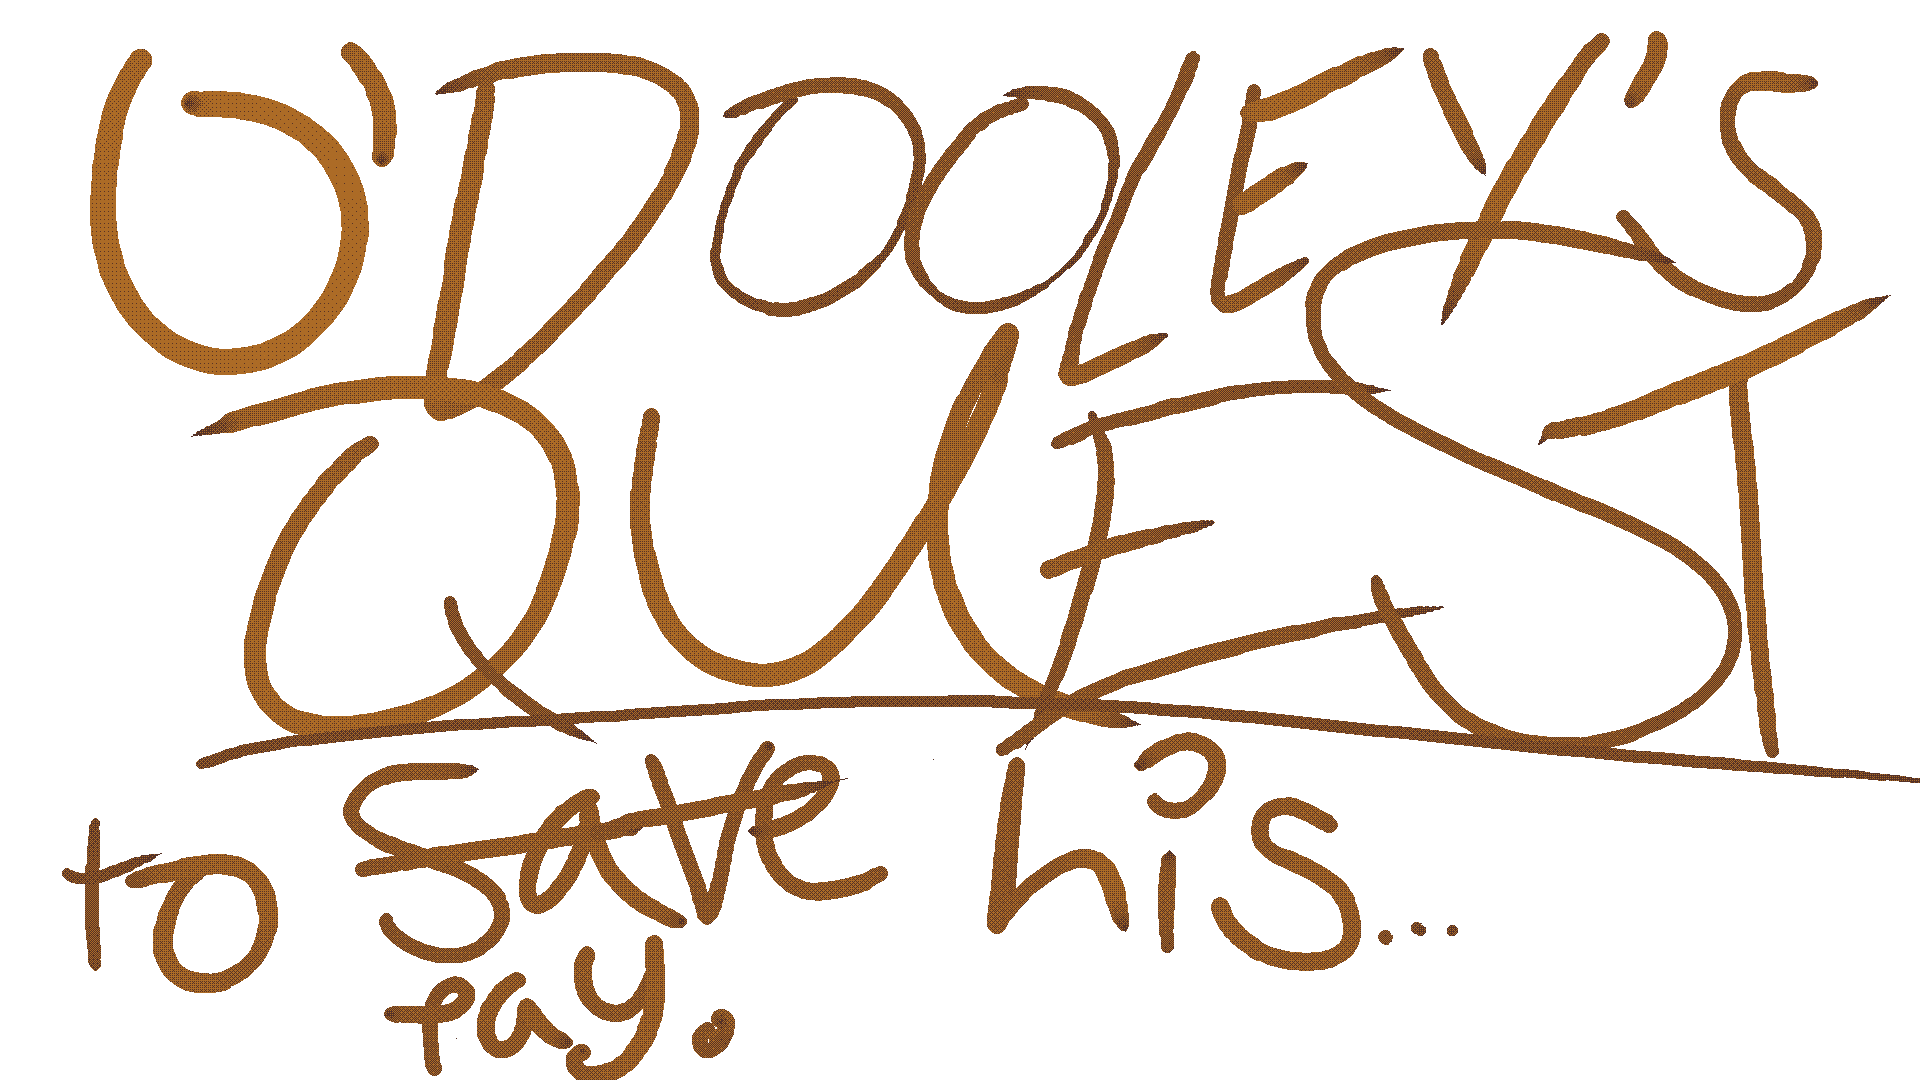 O'DOOLEY'S
QUEST
to save his...
pay.